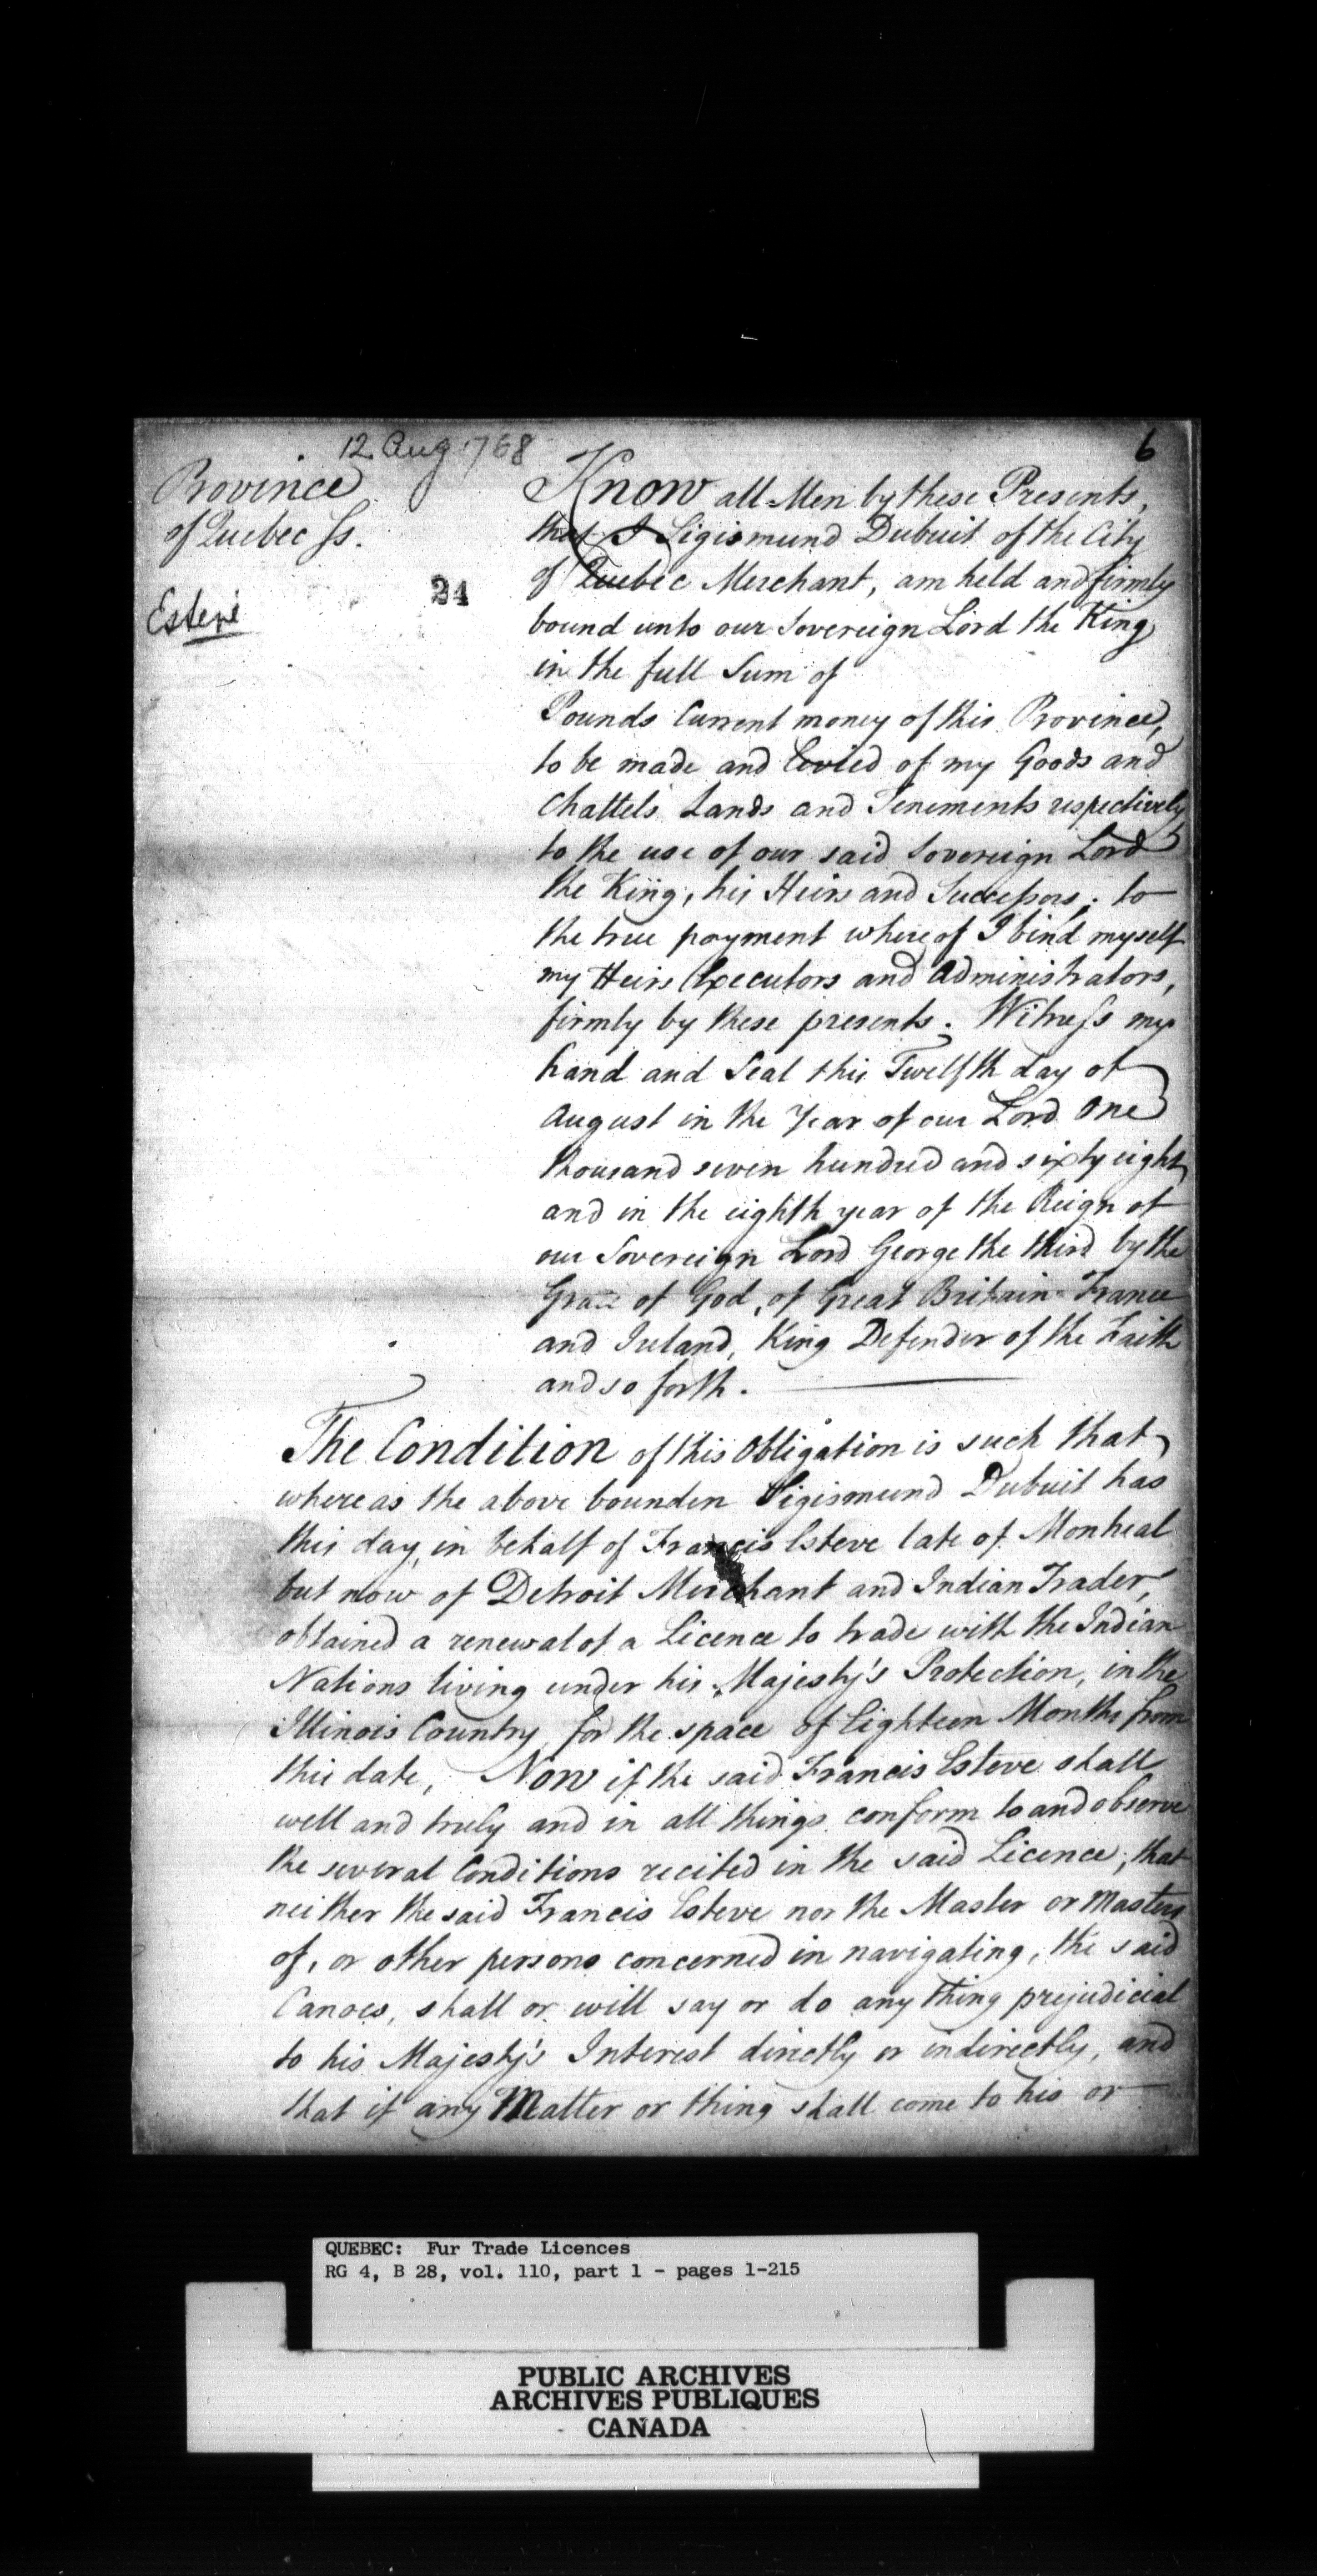 12 Aug 1768
6
Province
of Quebec Ss.
24
Estevé
Know all Men by these Presents,
that I Sigismund Dubuit of the City
of Quebec Merchant, am held and firmly
bound unto our Sovereign Lord the King
in the full Sum of
Pounds Current money of this Province,
to be made and levied of my Goods and
Chattels Lands and Tenements respectively
to the use of our said Sovereign Lord
the King, his Heirs and Successors; to
the true payment whereof I bind myself
my Heirs Executors and Administrators,
firmly by these presents. Witness my
hand and Seal this Twelfth day of
August in the Year of our Lord One
thousand seven hundred and sixty eight
and in the eighth year of the Reign of
our Sovereign Lord George the third by the
Grace of God, of Great Britain France
and Ireland, King Defender of the Faith
and so forth.
The Condition of this Obligation is such that
whereas the above bounden Sigismund Dubuit has
this day, in behalf of Francis Esteve late of Montreal
but now of Detroit Merchant and Indian Trader,
obtained a renewal of a Licence to trade with the Indian
Nations living under his Majesty's Protection, in the
Illinois Country, for the space of Eighteen Months from
this date, Now if the said Francis Esteve shall
well and truly and in all things conform to and observe
the several Conditions recited in the said Licence; that
neither the said Francis Esteve nor the Master or Masters
of, or other persons concerned in navigating, the said
Canoes, shall or will say or do any thing prejudicial
to his Majesty's Interest directly or indirectly, and
that if any Matter or thing shall come to his or
QUEBEC: Fur Trade Licences
RG 4, B 28, vol. 110, part 1 - pages 1-215
PUBLIC ARCHIVES
ARCHIVES PUBLIQUES
CANADA